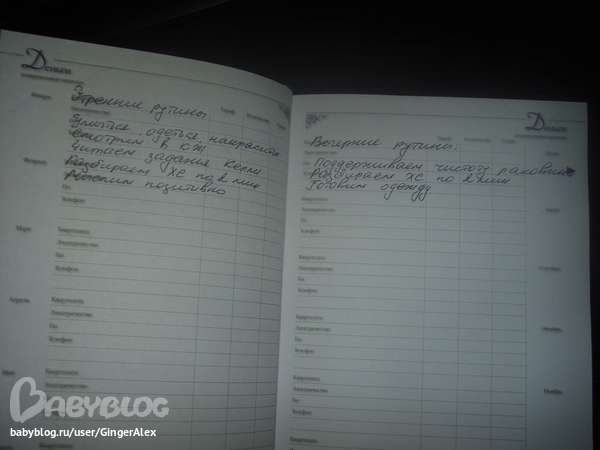 Деньги
Утренние рутины
Умыться, одеться, накраситься
Смотрим в КЖ
Читаем задание Керли
Разбираем ХС по 2 мин
Мыслим позитивно
Январь
Февраль
Газ
Телефон
Март
Квартплата
Электричество
Газ
Телефон
Апрель
Квартплата
Электричество
Газ
Телефон
Май
Квартплата
Электричество
Газ
Телефон
Деньги
Вечерние рутины:
Поддерживаем чистоту раковины
Разбираем ХС по 2 мин
Готовим одежду
Газ
Телефон
Квартплата
Электричество
Газ
Телефон
Октябрь
Квартплата
Электричество
Газ
Телефон
Ноябрь
Квартплата
Электричество
Газ
Телефон
BABYBLOG
babyblog.ru/user/GingerAlex